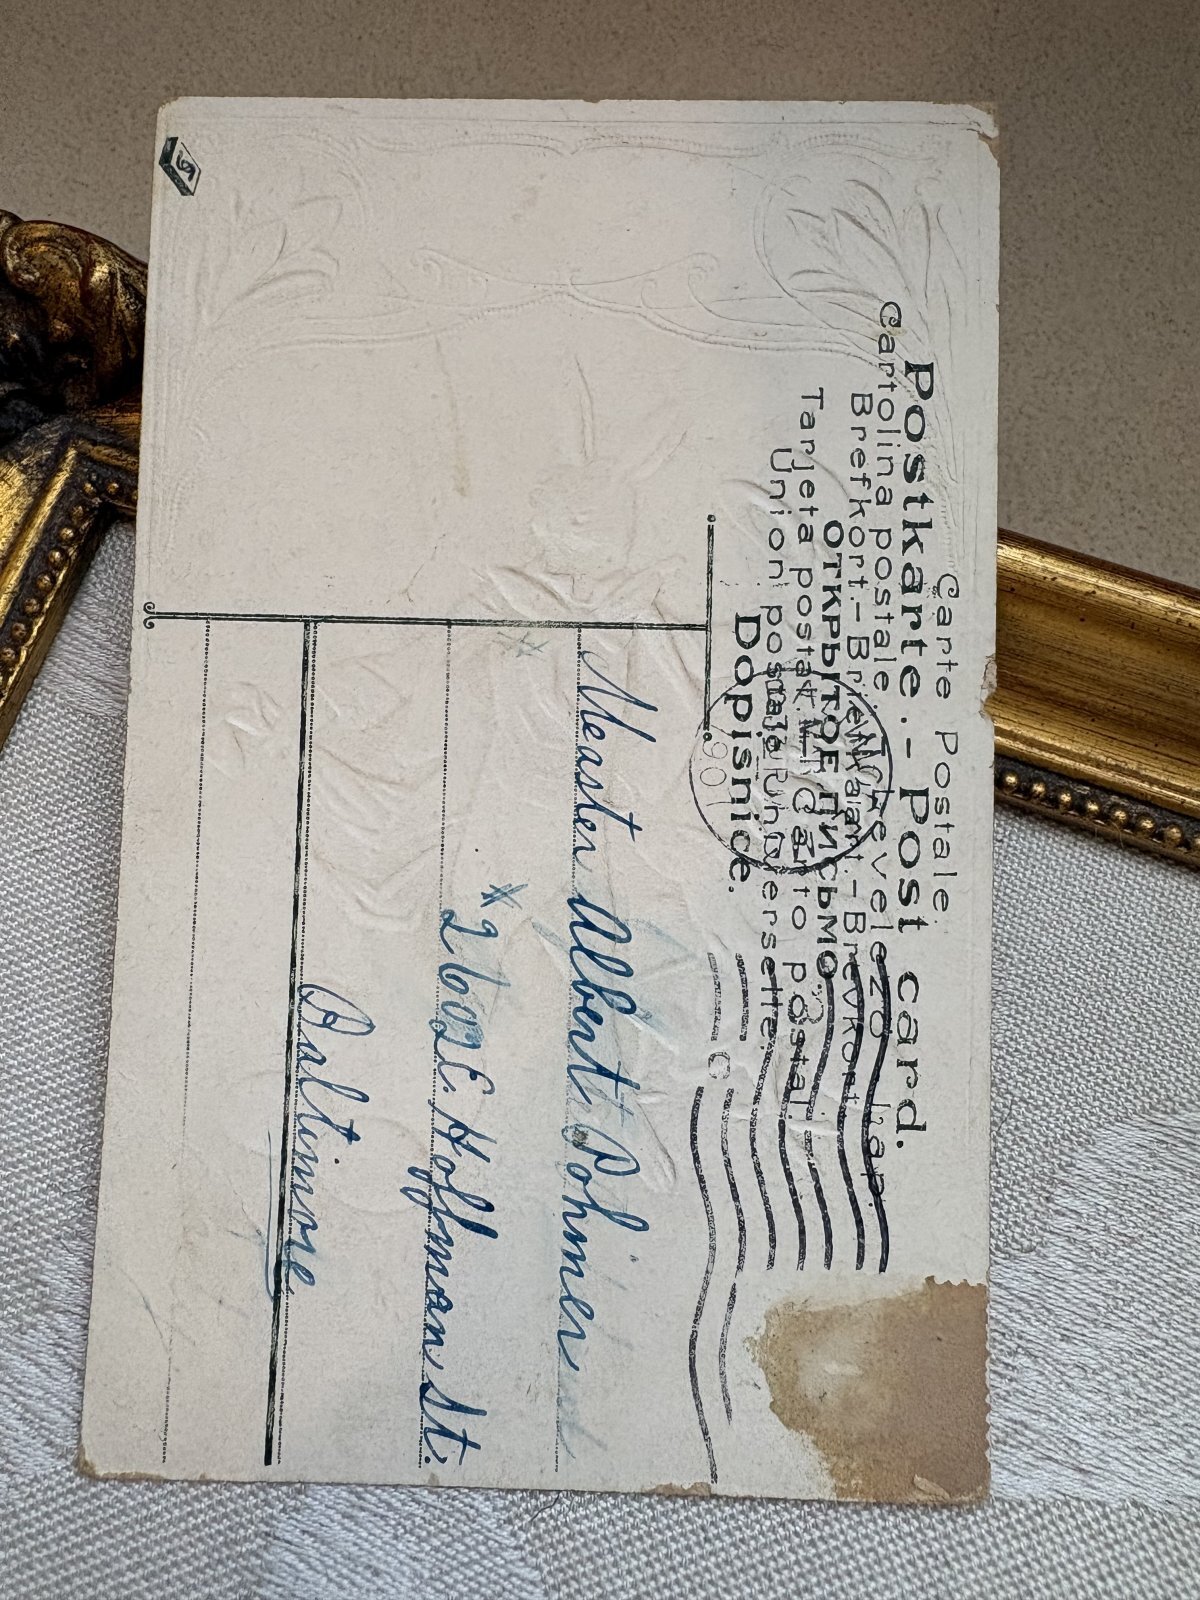 Carte Postale.
Postkarte.-Post card.
Cartolina postale.-Levelező lap.
Brefkort.-Briefkaart-Brevkort.
ОТКРЫТОЕ ПИСЬМО.
Tarjeta postal.-Carto postal.
Union postale universelle.
Dopisnice.
190
C
Master Albert Bohmer
* 2602 E. Hoffman St.
Baltimore